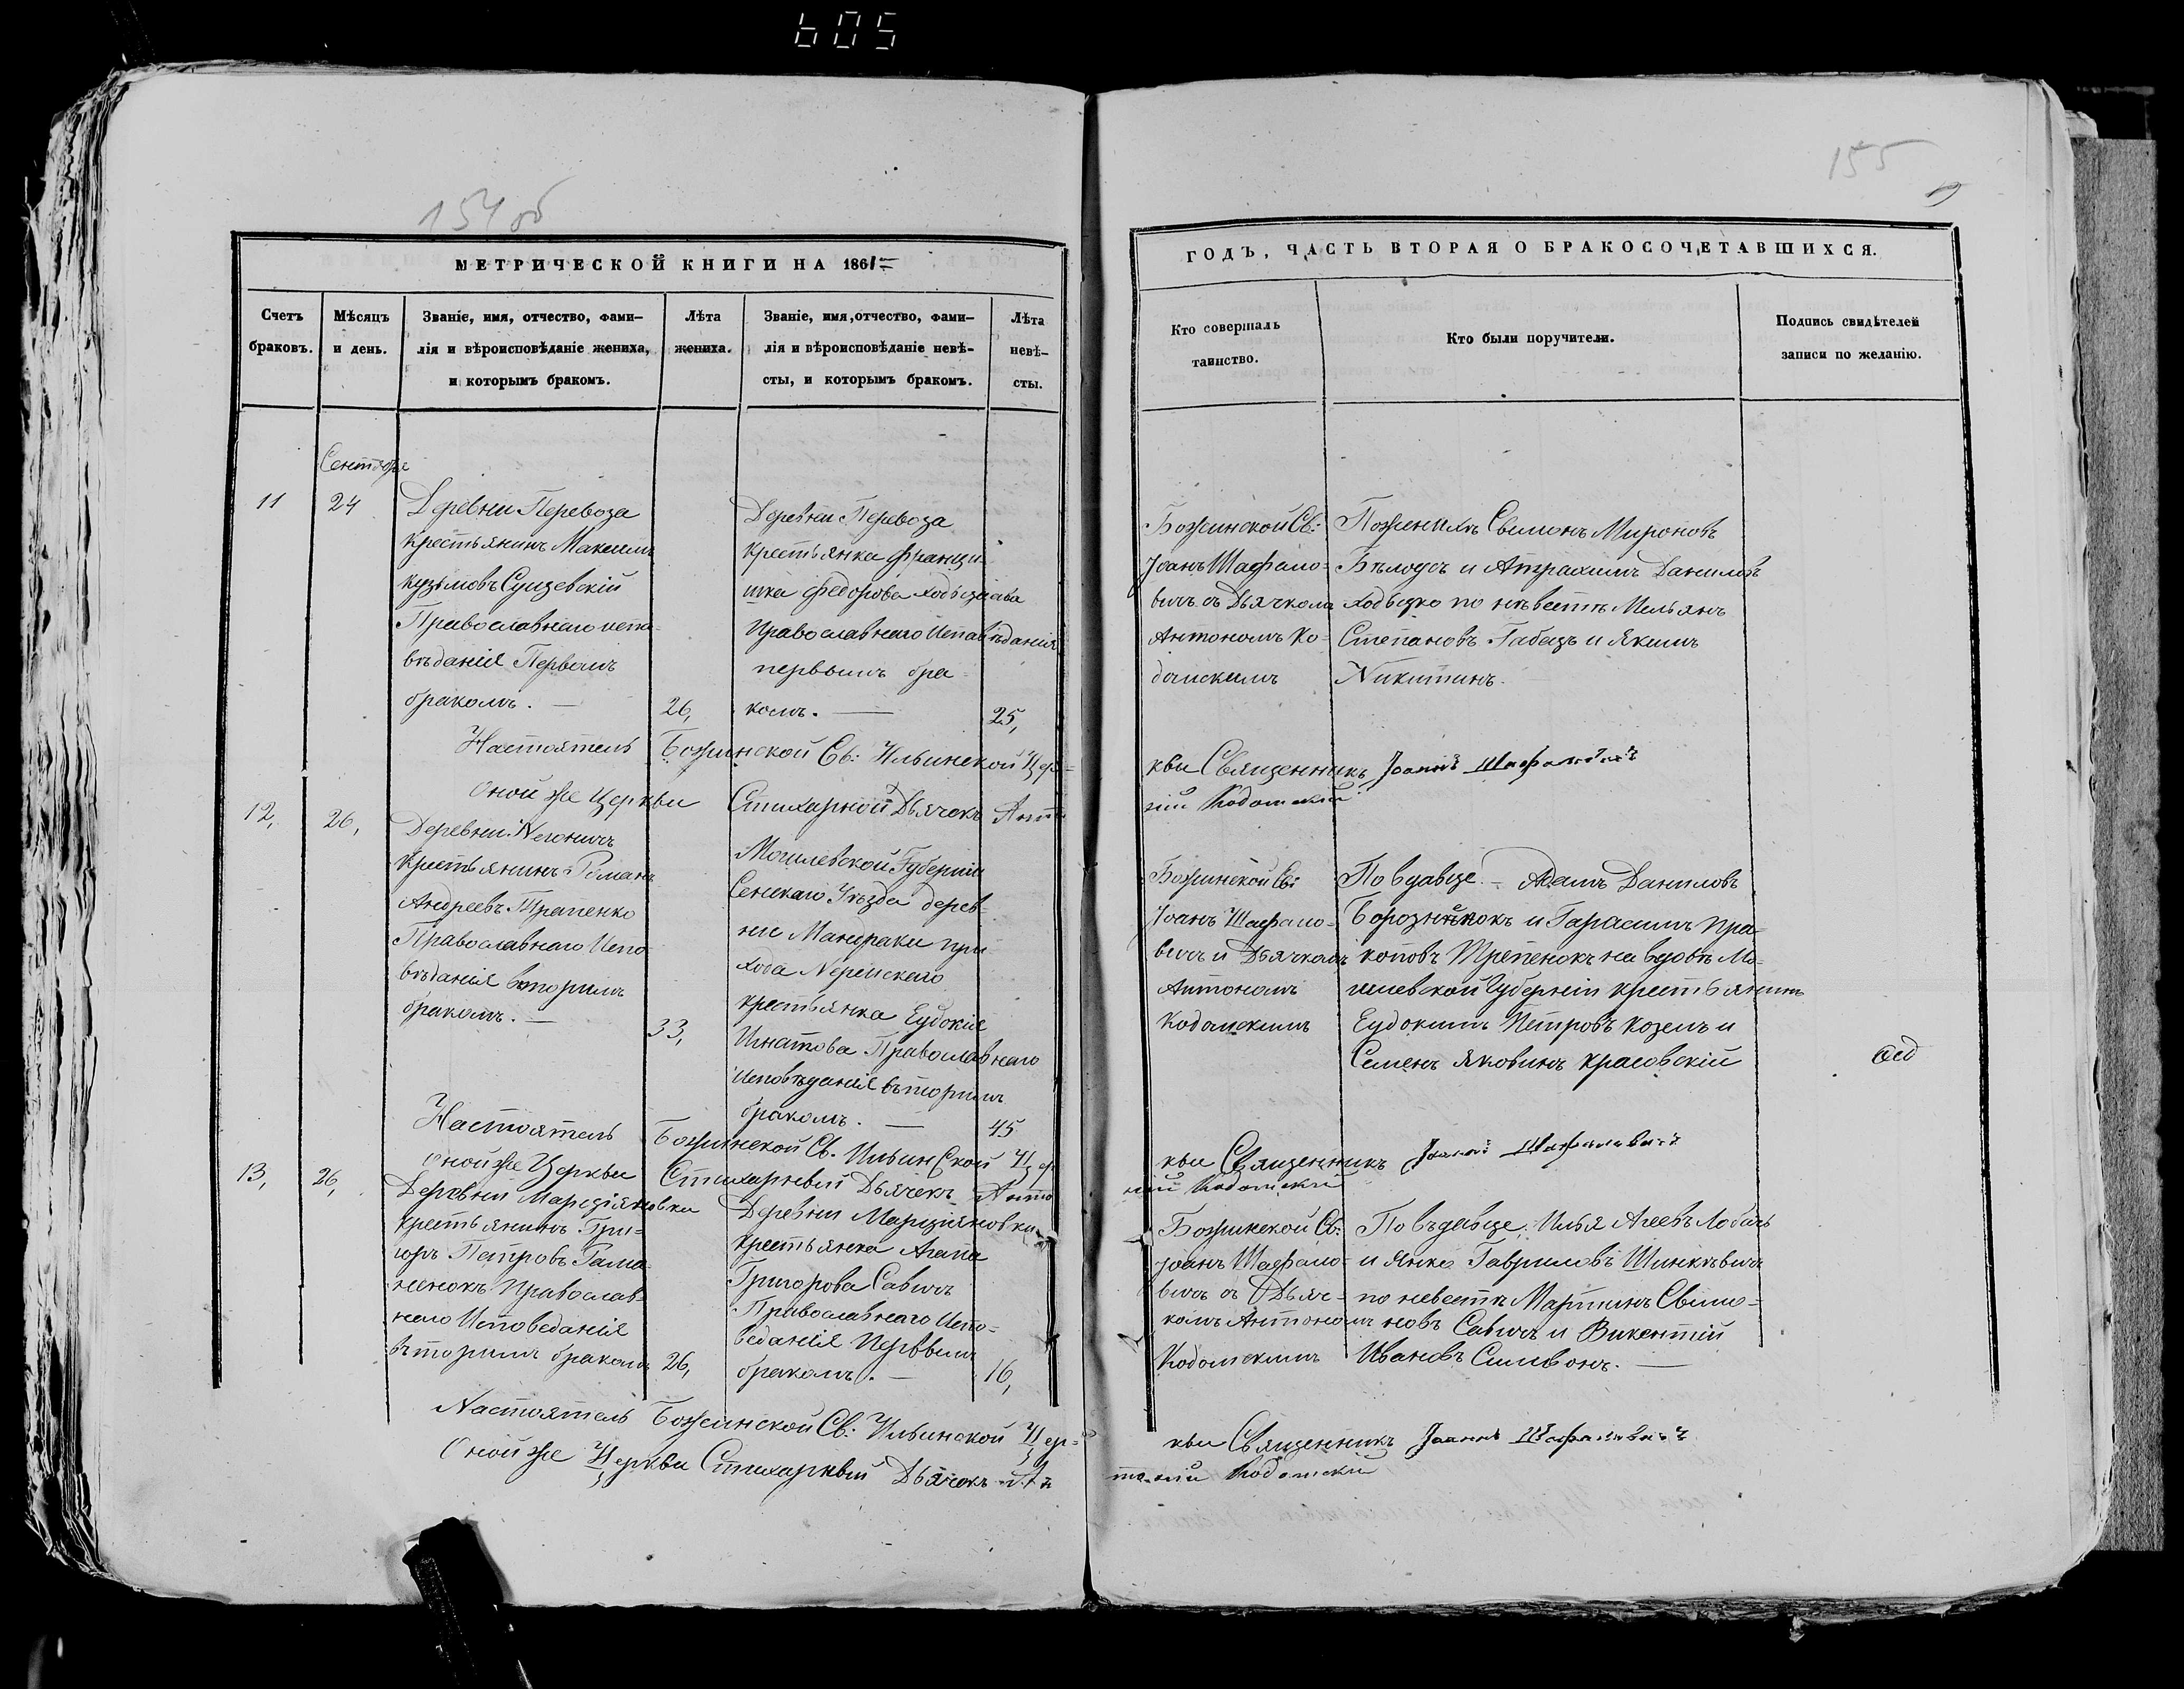 605
154 об
155
9
МЕТРИЧЕСКОЙ КНИГИ НА 1861
Счетъ браковъ.
Мѣсяцъ и день.
Званіе, имя, отчество, фами-
лія и вѣроисповѣданіе жениха,
и которымъ бракомъ.
Лѣта жениха.
Званіе, имя, отчество, фами-
лія и вѣроисповѣданіе невѣ-
сты, и которымъ бракомъ.
Лѣта невѣ-
сты.
ГОДЪ, ЧАСТЬ ВТОРАЯ О БРАКОСОЧЕТАВШИХСЯ.
Кто совершалъ
таинство.
Кто были поручители.
Подпись свидѣтелей
записи по желанію.
Сентябрь
11
24
Деревни Перевоза
крестьянинъ Максимъ
Кузьмовъ Сущевскій
Православнаго испо-
вѣданія Первымъ
бракомъ.
26,
Деревни Перевоза
крестьянка Франци-
шка Федорова
Православнаго Исповѣданія
первымъ бра-
комъ.
25,
Божинской Св:
Іоанъ Шафало-
вичъ съ Дьячкомъ
Антономъ Ко-
домскимъ
По женихѣ Симонъ Мироновъ
Бѣлоусъ и Данилов
Ходыко по невестѣ Мельянъ
Степановъ и Якимъ
Никитинъ.
Настоятель Божинской Св: Ильинской Цер-
кви Священникъ Іоаннъ Шафаловичъ
Оной же Церкви Стихарной Дьячокъ Анто
ній Кодомскій
12,
26,
Деревни
крестьянинъ Романъ
Андреевъ Трапенко
Православнаго Испо
вѣданія вторымъ
бракомъ.
33,
Могилевской Губерніи
Сенскаго Уѣзда дерев-
ни при
хода
крестьянка Еудокія
Игнатова Православнаго
Исповѣданія вторымъ
бракомъ.
45
Божинской Св:
Іоанъ Шафало-
вичъ и Дьячкомъ
Антономъ
Кодомскимъ
По вдавце Адамъ Даниловъ
и Гарасимъ Пра-
коповъ Трепенокъ на вдовѣ Мо-
гилевской Губерніи крестьянинъ
Еудокимъ Петровъ Козелъ и
Семенъ Яковинъ Красовскій
Настоятель Божинской Св. Ильинской Цер
кви Священникъ Іоаннъ Шафаловичъ
Оной же Церкви Стихарный Дьячекъ Анто
ній Кодомскій
13,
26,
Деревни Марціяновки
крестьянинъ Гри-
горъ Петровъ Рама-
ненокъ Православ-
наго Исповеданія
вторымъ бракомъ
26,
Деревни Марціяновки
крестьянка Агапа
Григорова Савичъ
Православнаго Испо-
веданія Первымъ
бракомъ.
16,
Божинской Св:
Іоанъ Шафало-
вичъ съ Дьяч-
комъ Антономъ
Кодомскимъ
По вдавце, Илья Агеевъ Лобачъ
и Янка Гавриловъ Шинкевичъ
по невестѣ Мартинъ Симо-
новъ Савичъ и Викентій
Ивановъ Симвонъ.
Настоятель Божинской Св: Ильинской Цер-
кви Священникъ Іоаннъ Шафаловичъ
Оной же Церкви Стихарный Дьячокъ Ан
тоній Кодомскій